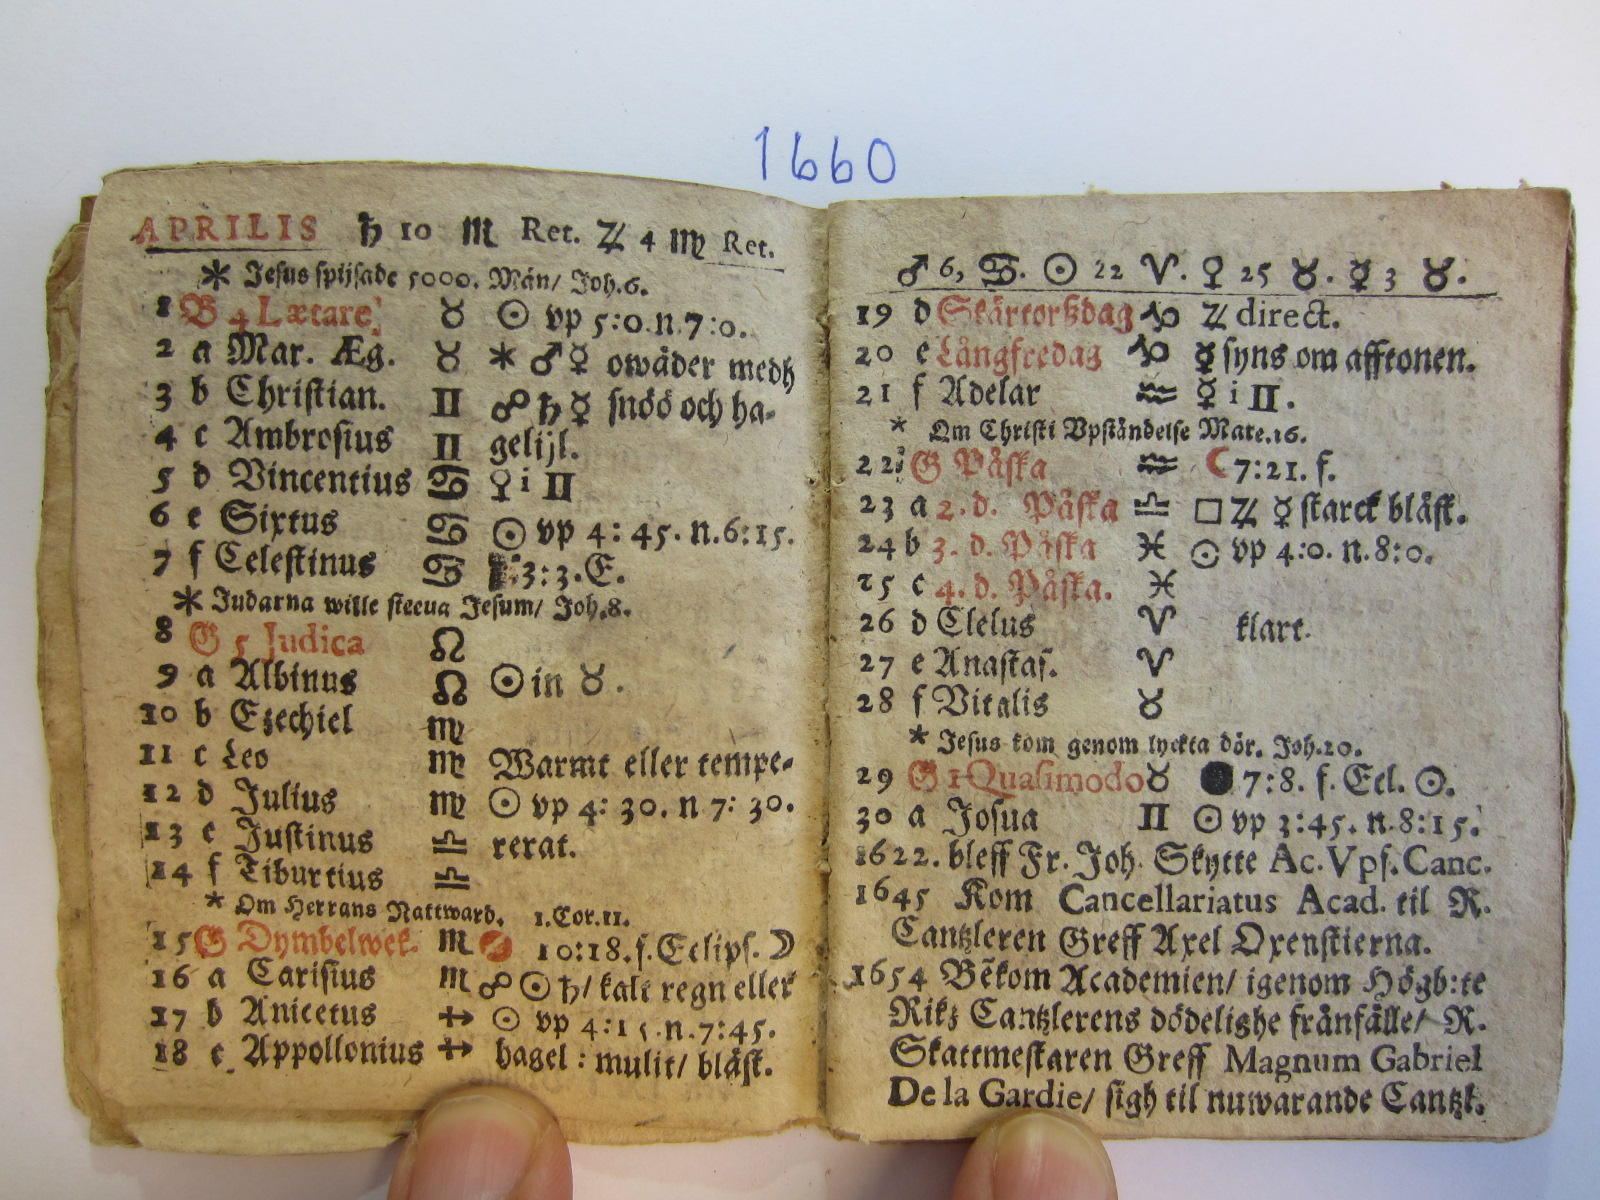 1660
APRILIS ♄ 10 ♏ Ret. ♃ 4 ♍ Ret.
* Jesus spijsade 5000. Män/ Joh.6.
1 G 4 Lætare ♉ ☉ vp 5:0.n.7:0.
2 a Mar. Æg. ♉ * ♂ ☿ owäder medh
3 b Christian. ♊ ☍ ♄ ☿ snöö och ha-
4 c Ambrosius ♊ gelijl.
5 d Vincentius ♋ ♀ i ♊
6 e Sixtus ♋ ☉ vp 4:45.n.6:15.
7 f Celestinus ♋ 3:3.E.
* Judarna wille steena Jesum/ Joh.8.
8 G 5 Judica ♌
9 a Albinus ♌ ☉ in ♉.
10 b Ezechiel ♍
11 c Leo ♍ Warmt eller tempe-
12 d Julius ♍ ☉ vp 4:30. n 7:30.
13 e Justinus ♎ rerat.
14 f Tiburtius ♎
* Om Herrans Nattward. 1.Cor.11.
15 G Dymbelwek. ♏ 10:18.f.Eclips. ☽
16 a Carisius ♏ ☍ ☉ ♄/ kalt regn eller
17 b Anicetus ♐ ☉ vp 4:15.n.7:45.
18 c Appollonius ♐ hagel: mulit/ blåst.
♂ 6, ♋. ☉ 22 ♈. ♀ 25 ♉. ☿ 3 ♉.
19 d Skärtorßdag ♑ ♃ direct.
20 e Långfredag ♑ ☿ syns om afftonen.
21 f Adelar ♒ ☿ i ♊.
* Om Christi Vpståndelse Marc.16.
22 G Påska ♒ ☾ 7:21. f.
23 a 2. d. Påska ♎ □ ♃ ☿ starck blåst.
24 b 3. d. Påska ♓ ☉ vp 4:0. n.8:0.
25 c 4. d. Påska. ♓
26 d Cletus ♈ klart.
27 e Anastas. ♈
28 f Vitalis ♉
* Jesus kom genom lyckta dör. Joh.20.
29 G 1 Quasimodo ♉ ● 7:8. f. Ecl. ☉.
30 a Josua ♊ ☉ vp 3:45. n.8:15.
1622. bleff Fr. Joh. Skytte Ac. Vps. Canc.
1645 Kom Cancellariatus Acad. til R.
Cantzleren Greff Axel Oxenstierna.
1654 Bekom Academien/ igenom Högb:te
Rikz Cantzlerens dödelighe frånfälle/ R.
Skattmestaren Greff Magnum Gabriel
De la Gardie/ sigh til nuwarande Cantzl.